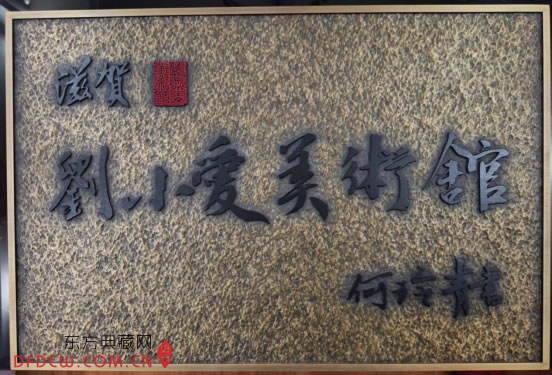 滋贺
劉小愛美術舘
书
东方典藏网
DFDCW.COM.CN